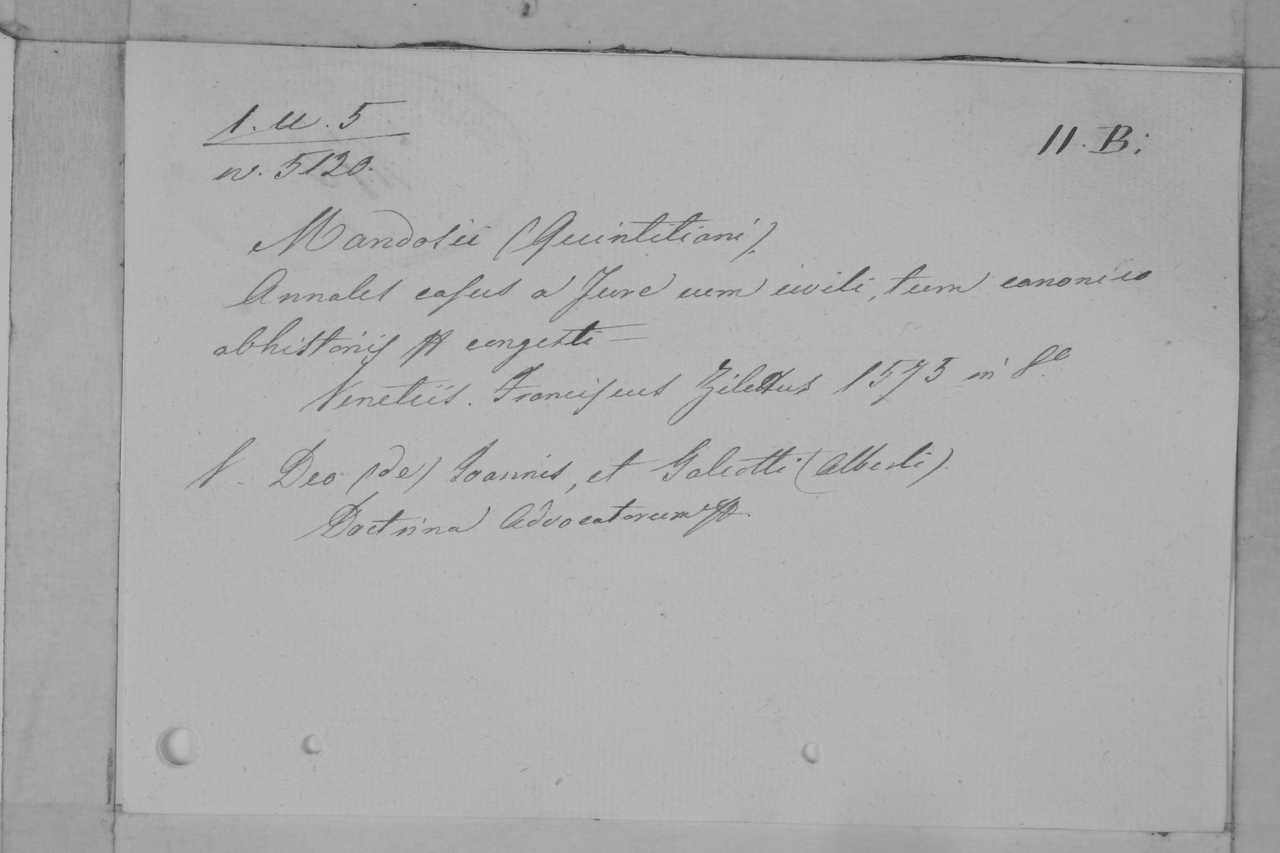 1. U. 5
n. 5120.
11. B:
Mandosii (Quintiliani)
Annales casus a Jure cum civili, tum canonico
abhistoriis congesti —
Venetiis. Franciscus Zilettus 1575 in 8°
V. Deo (de) Joannis, et Galeotti (Alberti).
Doctrina Advocatorum